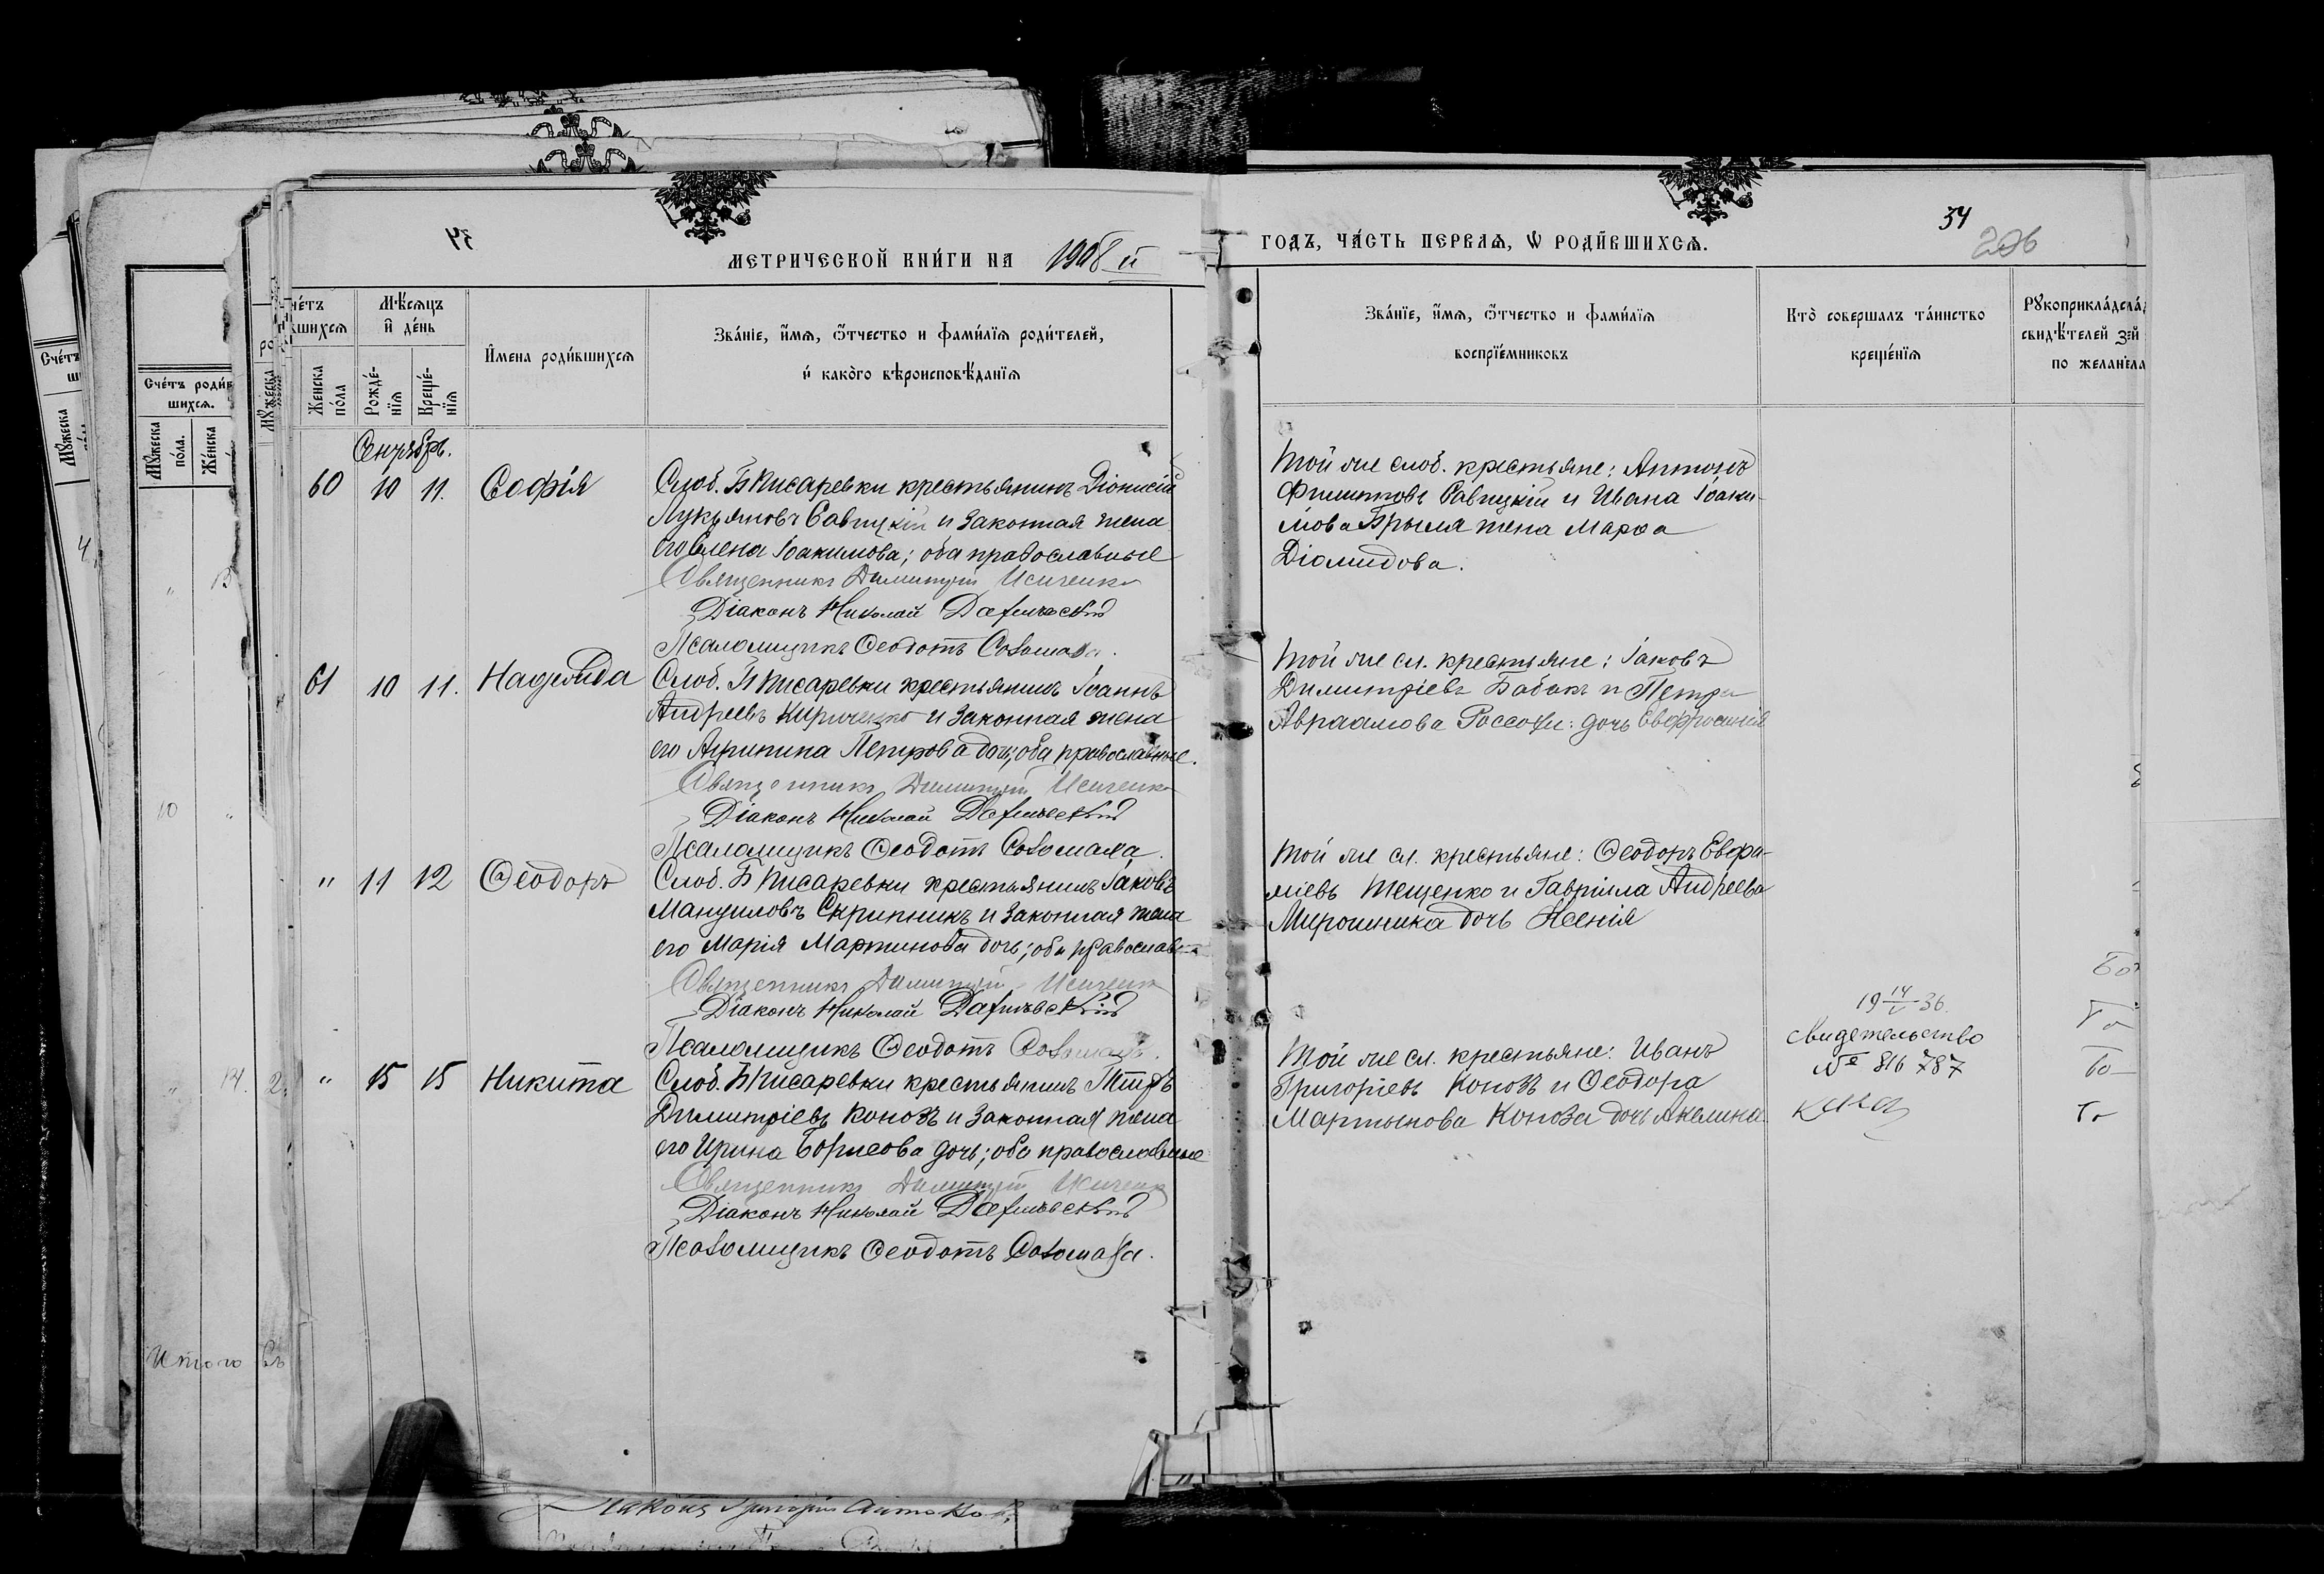 34
МЕТРИЧЕСКОЙ КНИ́ГИ НА 1908 й
ГОДЪ, ЧА́СТЬ ПЕРВАѦ, Ѡ РОДИ́ВШИХСѦ.
34
206
Мѣ́сѧцъ и де́нь
Же́нска по́ла
Рожде́нїѧ
Креще́нїѧ
И҆мена роди́вшихсѧ
Зва́нїе, и҆́мѧ, ѻ҆́тчество и фами́лїѧ роди́телей,
и҆ како́го вѣроисповѣ́данїѧ
Зва́нїе, и҆́мѧ, ѻ҆́тчество и фами́лїѧ
воспрїе́мниковъ
Кто̀ совершалъ та́инство
креще́нїѧ
Счéтъ роди́в
шихсѧ.
Мꙋ́жеска по́ла.
Же́нска
Сентябрь.
60 10 11. Софія
Слоб. Б Писаревки крестьянинъ Діонисій
Лукьяновъ Савицкій и законная жена
его Елена Іоакимова; оба православные
Священникъ Димитрій Исиченко
Діаконъ Николай
Псаломщикъ Ѳеодотъ
Той же слоб. крестьяне: Антонъ
Филипповъ Савицкій и Ивана Іоаки-
мова Брыля жена Марѳа
Діомидова.
61 10 11. Надежда
Слоб. Б Писаревки крестьянинъ Іоаннъ
Андреевъ Кириченко и законная жена
его Агрипина Петрова дочь; оба православные.
Священникъ Димитрій Исиченко
Діаконъ Николай
Псаломщикъ Ѳеодотъ
Той же сл. крестьяне: Іаковъ
Димитріевъ Бабакъ и Петра
Авраамова дочь Евфросинія
" 11 12 Ѳеодоръ
Слоб. Б Писаревки крестьянинъ Іаковъ
Мануиловъ Скрипникъ и законная жена
его Марія Мартинова дочь; оба православ
Священникъ Димитрій Исиченко
Діаконъ Николай
Псаломщикъ Ѳеодотъ
Той же сл. крестьяне: Ѳеодоръ Евфи-
міевъ Тещенко и Гавріила Андреева
Мирошника дочь Ксенія
" 15 15 Никита
Слоб. Б Писаревки крестьянинъ Петръ
Димитріевъ Конозъ и законная жена
его Ирина Борисова дочь; оба православные
Священникъ Димитрій Исиченко
Діаконъ Николай
Псаломщикъ Ѳеодотъ
Той же сл. крестьяне: Иванъ
Григоріевъ Конозъ и Ѳеодора
Мартынова Коноза дочь Акилина
свидетельство
№ 816787
Итого